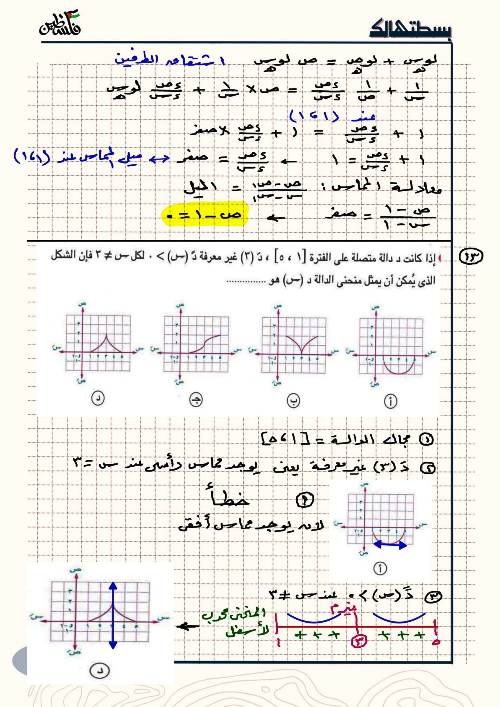 فلسطين
بسطتهالك
لو س + لو ص = ص لو س اشتقاق الطرفين
هـ هـ هـ
١/س + ١/ص ءص/ءس = ص × ١/س + ءص/ءس لو س
عند (١،١)
١ + ءص/ءس = ١ + ءص/ءس × صفر
١ + ءص/ءس = ١ ← ءص/ءس = صفر ↔ ميل المماس عند (١،١)
معادلة المماس: ص - ص١/س - س١ = الميل
ص - ١/س - ١ = صفر ← ص - ١ = ٠
١٣
إذا كانت د دالة متصلة على الفترة [١ ، ٥] ، دَ (٣) غير معرفة دً (س) > ٠ لكل س ≠ ٣ فإن الشكل
الذى يُمكن أن يمثل منحنى الدالة د (س) هو ...............
أ ب جـ د
١ مجال الدالة = [١،٥]
٢ دَ (٣) غير معرفة يعنى يوجد مماس رأسى عند س = ٣
خطأ
لأن يوجد مماس أفقى
أ
٣ دً (س) > ٠ عند س ≠ ٣
المنحنى محدب
لأسفل
+ + + + + +
١ ٣ ٥
د